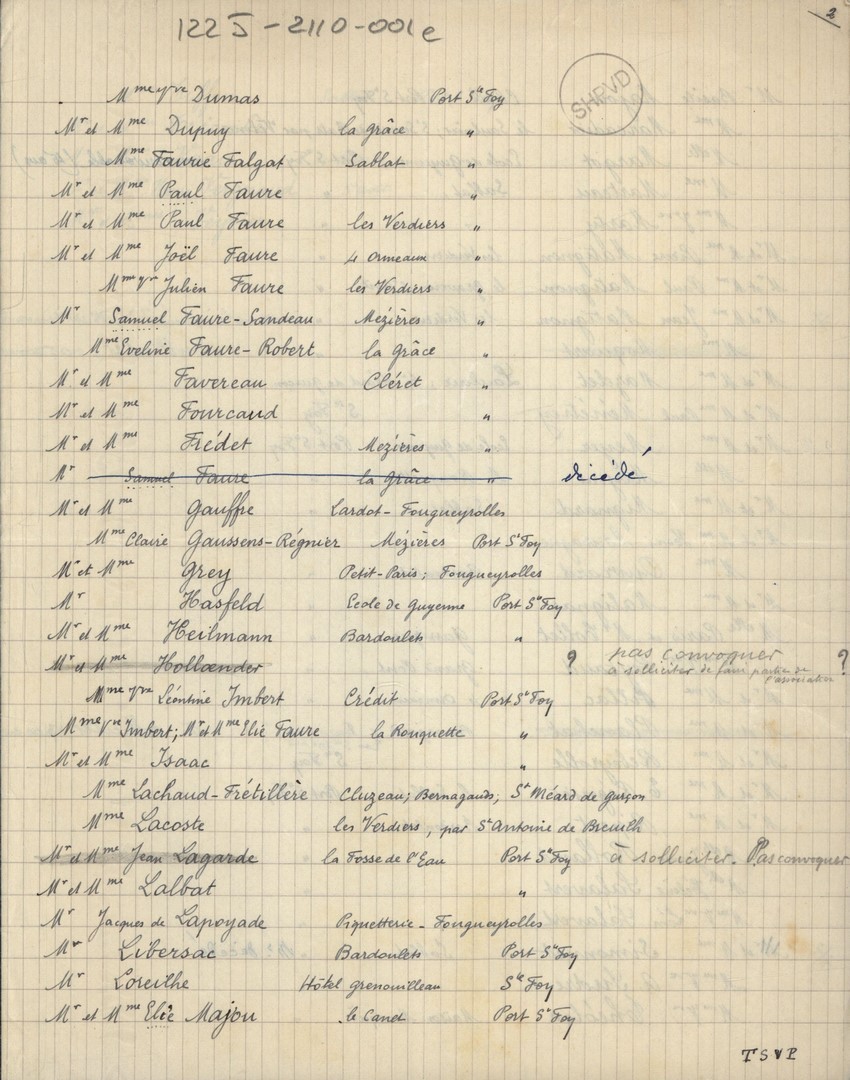 122 J-2110-001e
2
SHPVD
Mme Vve Dumas Port Ste Foy
Mr et Mme Dupuy la Grâce "
Mme Faurie Falgat Sablat "
Mr et Mme Paul Faure "
Mr et Mme Paul Faure les Verdiers "
Mr et Mme Joël Faure 4 ormeaux "
Mme Vve Julien Faure les Verdiers "
Mr Samuel Faure-Sandeau Mezières "
Mme Eveline Faure-Robert la Grâce "
Mr et Mme Favereau Cléret "
Mr et Mme Fourcaud "
Mr et Mme Frédet Mezières "
Mr Samuel Faure la Grâce " décédé
Mr et Mme Gauffre Lardot-Fougueyrolles
Mme Claire Gaussens-Régnier Mézières Port Ste Foy
Mr et Mme Grey Petit-Paris; Fougueyrolles
Mr Hasfeld Ecole de Guyenne Port Ste Foy
Mr et Mme Heilmann Bardoulets "
Mr et Mme Hollaender ? pas convoquer ?
à solliciter de faire partie de l'association
Mme Vve Léontine Imbert Crédit Port Ste Foy
Mme Vve Imbert; Mr et Mme Elie Faure la Rouquette "
Mr et Mme Isaac "
Mme Lachaud-Frétillère Cluzeau; Bernagauds; St Méard de gurçon
Mme Lacoste les Verdiers, par St Antoine de Breuilh
Mr et Mme Jean Lagarde la Fosse de l'Eau Port Ste Foy à solliciter. Pas convoquer
Mr et Mme Lalbat "
Mr Jacques de Lapoyade Piquetterie-Fougueyrolles
Mr Libersac Bardoulets Port Ste Foy
Mr Loreilhe Hôtel Grenouilleau Ste Foy
Mr et Mme Elie Majou le Canet Port Ste Foy
TSVP